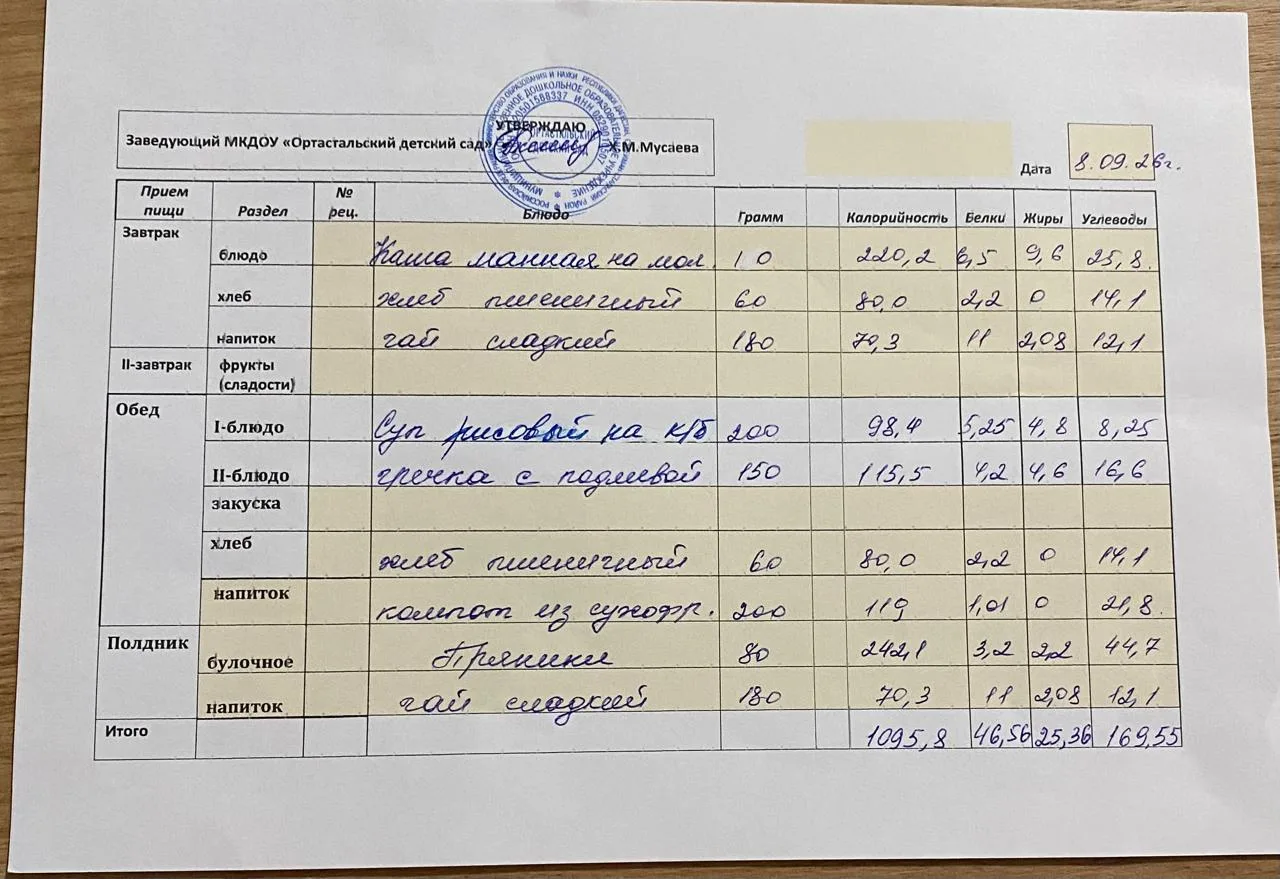 УТВЕРЖДАЮ
Заведующий МКДОУ «Ортастальский детский сад» Х.М.Мусаева
Дата 8.09.26г.
Прием пищи Раздел № рец. Блюдо Грамм Калорийность Белки Жиры Углеводы
Завтрак
блюдо Каша манная на мол. 220,2 6,5 9,6 25,8.
хлеб хлеб пшеничный 60 80,0 2,2 0 14,1
напиток чай сладкий 180 70,3 11 2,08 12,1
II-завтрак фрукты
(сладости)
Обед
I-блюдо Суп рисовый на к/б 200 98,4 5,25 4,8 8,25
II-блюдо гречка с подливой 150 115,5 4,2 4,6 16,6
закуска
хлеб хлеб пшеничный 60 80,0 2,2 0 14,1
напиток компот из сухофр. 200 119 1,01 0 21,8.
Полдник
булочное Пряники 80 242,1 3,2 2,2 44,7
напиток чай сладкий 180 70,3 11 2,08 12,1
Итого 1095,8 46,56 25,36 169,55